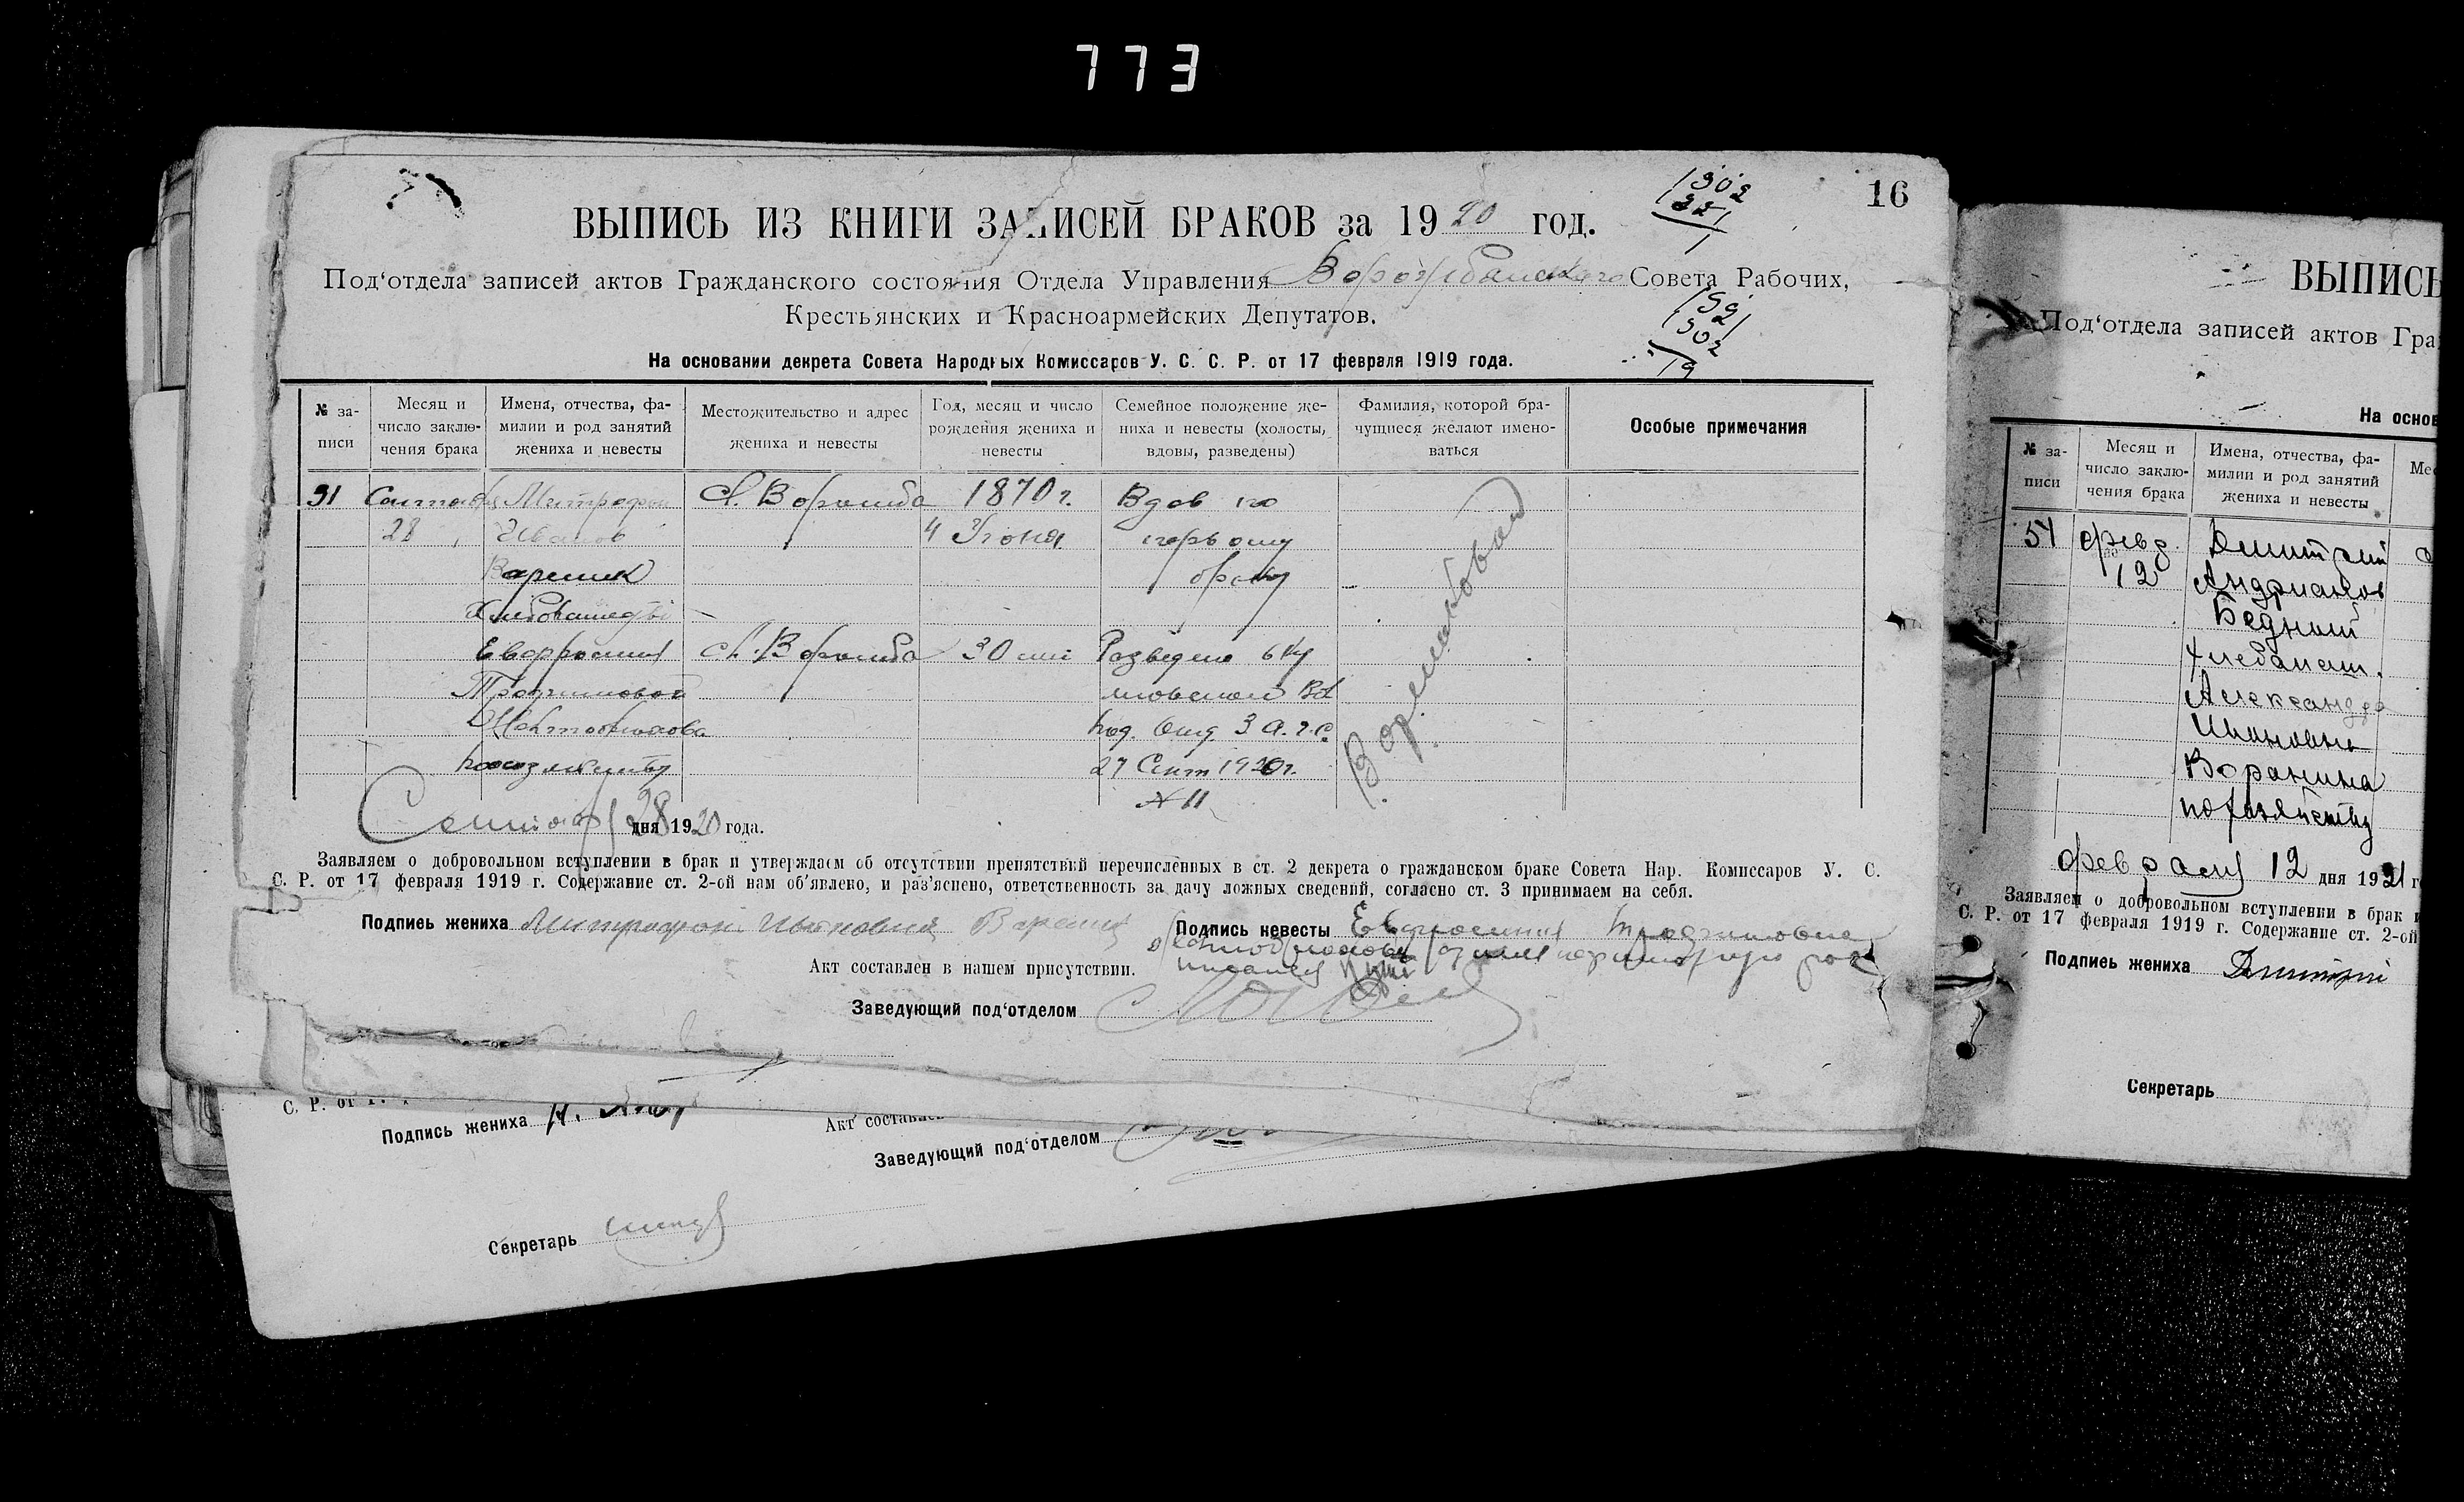 773
16
1902
ВЫПИСЬ ИЗ КНИГИ ЗАПИСЕЙ БРАКОВ за 1920 год.
Под‘отдела записей актов Гражданского состояния Отдела Управления Ворожбанского Совета Рабочих,
Крестьянских и Красноармейских Депутатов.
На основании декрета Совета Народных Комиссаров У. С. С. Р. от 17 февраля 1919 года.
19
№ за-
писи
Месяц и
число заклю-
чения брака
Имена, отчества, фа-
милии и род занятий
жениха и невесты
Местожительство и адрес
жениха и невесты
Год, месяц и число
рождения жениха и
невесты
Семейное положение же-
ниха и невесты (холосты,
вдовы, разведены)
Фамилия, которой бра-
чущиеся желают имено-
ваться
Особые примечания
31
28
Митрофан
Иванов
Варешик
с. Ворожба
1870 г.
4 Июня
Вдов по
первому
браку
Евфросиния
Трофимовой
с. Ворожба
30 лет
Разведена
Под. Отд. З.А.Г.С.
27 Сент 1920 г.
№ 11
Сентября 28 дня 1920 года.
Заявляем о добровольном вступлении в брак и утверждаем об отсутствии препятствий перечисленных в ст. 2 декрета о гражданском браке Совета Нар. Комиссаров У. С.
С. Р. от 17 февраля 1919 г. Содержание ст. 2-ой нам об‘явлено, и раз‘яснено, ответственность за дачу ложных сведений, согласно ст. 3 принимаем на себя.
Подпись жениха Митрофан
Подпись невесты Евфросиния Трофимовна
Акт составлен в нашем присутствии.
Заведующий под‘отделом
С. Р. от
Подпись жениха
Акт составлен
Заведующий под‘отделом
Секретарь
ВЫПИСЬ
Под‘отдела записей актов Гра
На основ
№ за-
писи
Месяц и
число заклю-
чения брака
Имена, отчества, фа-
милии и род занятий
жениха и невесты
Мес
54
февр.
12
Дмитрий
Андрианов
Бедный
хлебопаш.
Александра
Ивановна
Воронина
по хозяйству
февраля 12 дня 1921 г
Заявляем о добровольном вступлении в брак и
С. Р. от 17 февраля 1919 г. Содержание ст. 2-ой
Подпись жениха Дмитрий
Секретарь